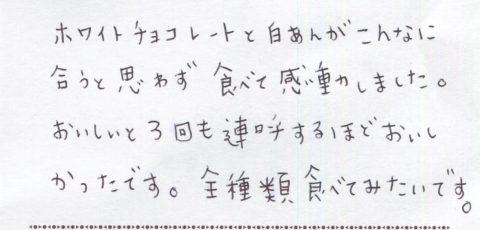 ホワイトチョコレートと白あんがこんなに
合うと思わず食べて感動しました。
おいしいと3回も連呼するほどおいし
かったです。全種類食べてみたいです。